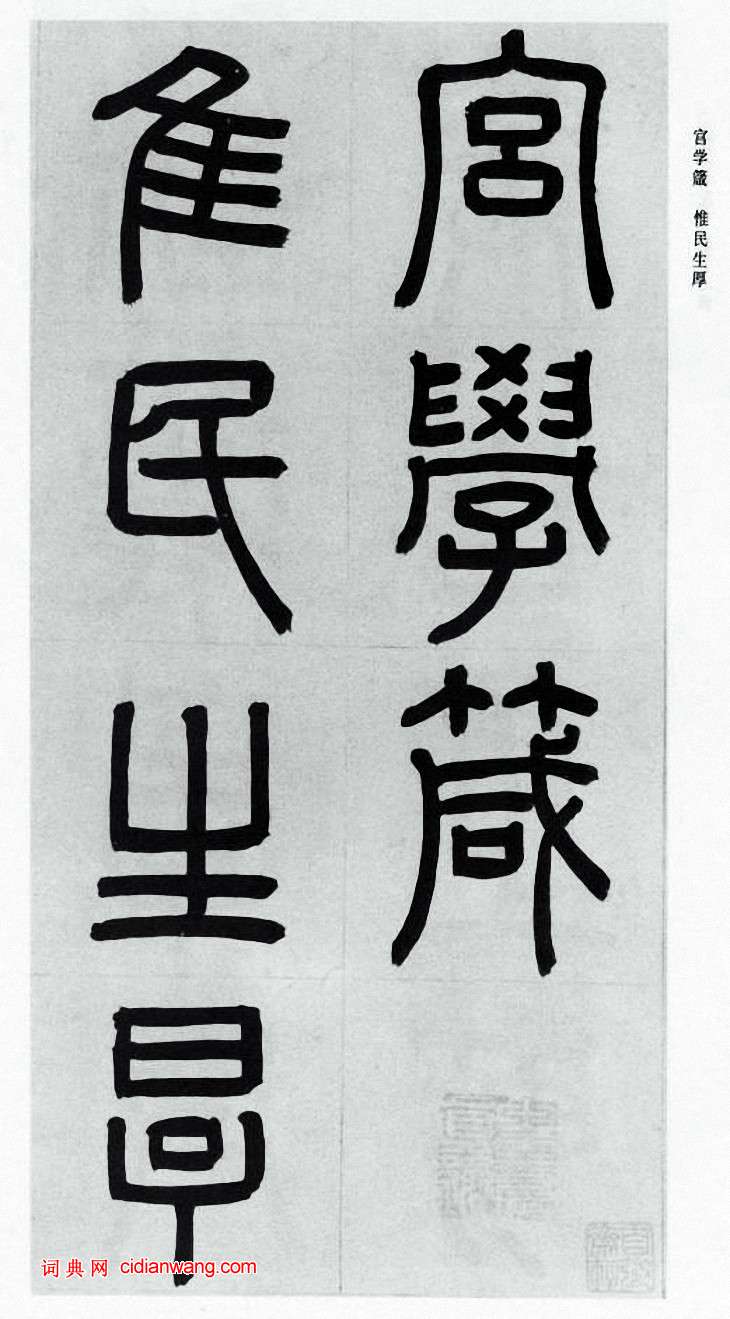 宫學箴
隹民生㫗
宫学箴 惟民生厚
词典网 cidianwang.com